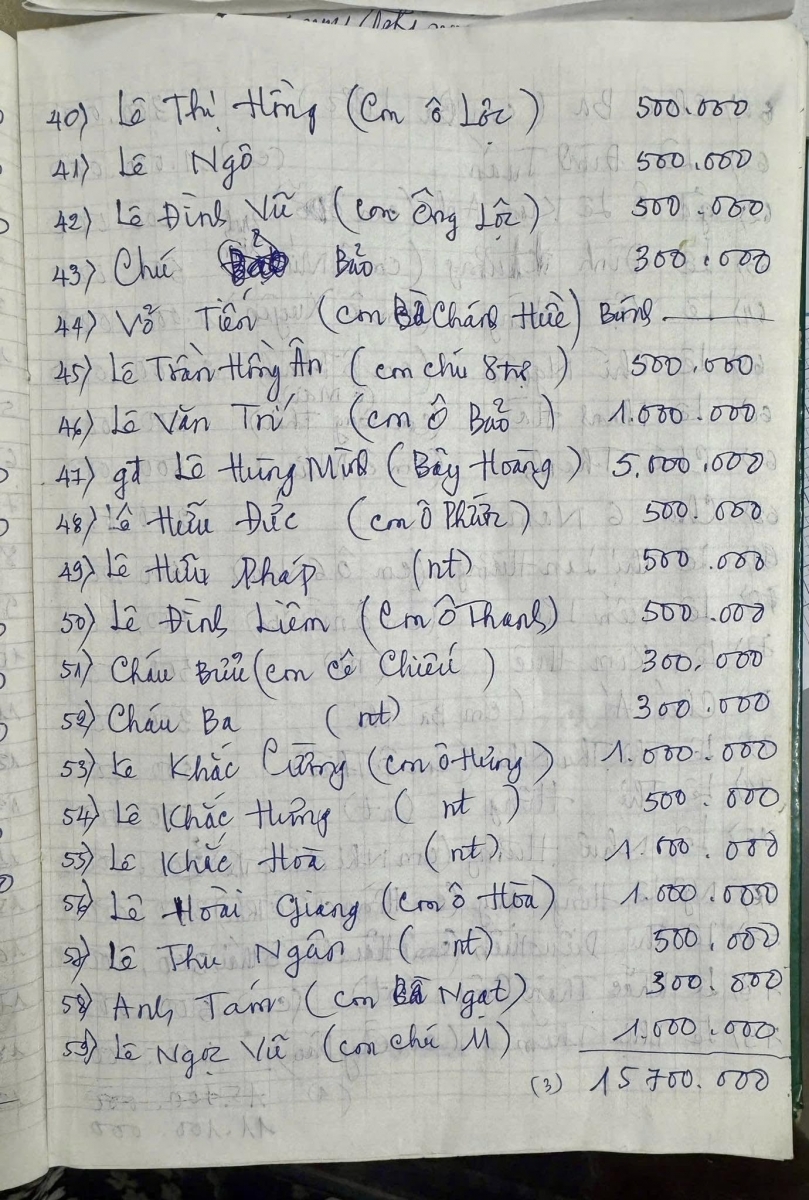 40) Lê Thị Hồng (con ô Lộc) 500.000
41) Lê Ngô 500.000
42) Lê Đình Vũ (con Ông Lộc) 500.000
43) Chú 2 Bảo 300.000
44) Võ Tiến (con Bà Chánh Huề) Bánh
45) Lê Trần Hồng Ân (con chú 8 trợ) 500.000
46) Lê Văn Trí (con Ô Bảo) 1.000.000
47) gđ Lê Hùng Minh (Bảy Hoàng) 5.000.000
48) Lê Hữu Đức (con Ô Phước) 500.000
49) Lê Hữu Pháp (nt) 500.000
50) Lê Đình Liêm (con Ô Thanh) 500.000
51) Cháu Bửu (con cô Chiểu) 300.000
52) Cháu Ba (nt) 300.000
53) Lê Khắc Cường (con ô Hưng) 1.000.000
54) Lê Khắc Hưng (nt) 500.000
55) Lê Khắc Hoà (nt) 1.000.000
56) Lê Hoài Giang (con ô Hòa) 1.000.000
57) Lê Thu Ngân (nt) 500.000
58) Anh Tám (con Bà Ngạt) 300.000
59) Lê Ngọc Vũ (con chú M) 1.000.000
(3) 15700.000